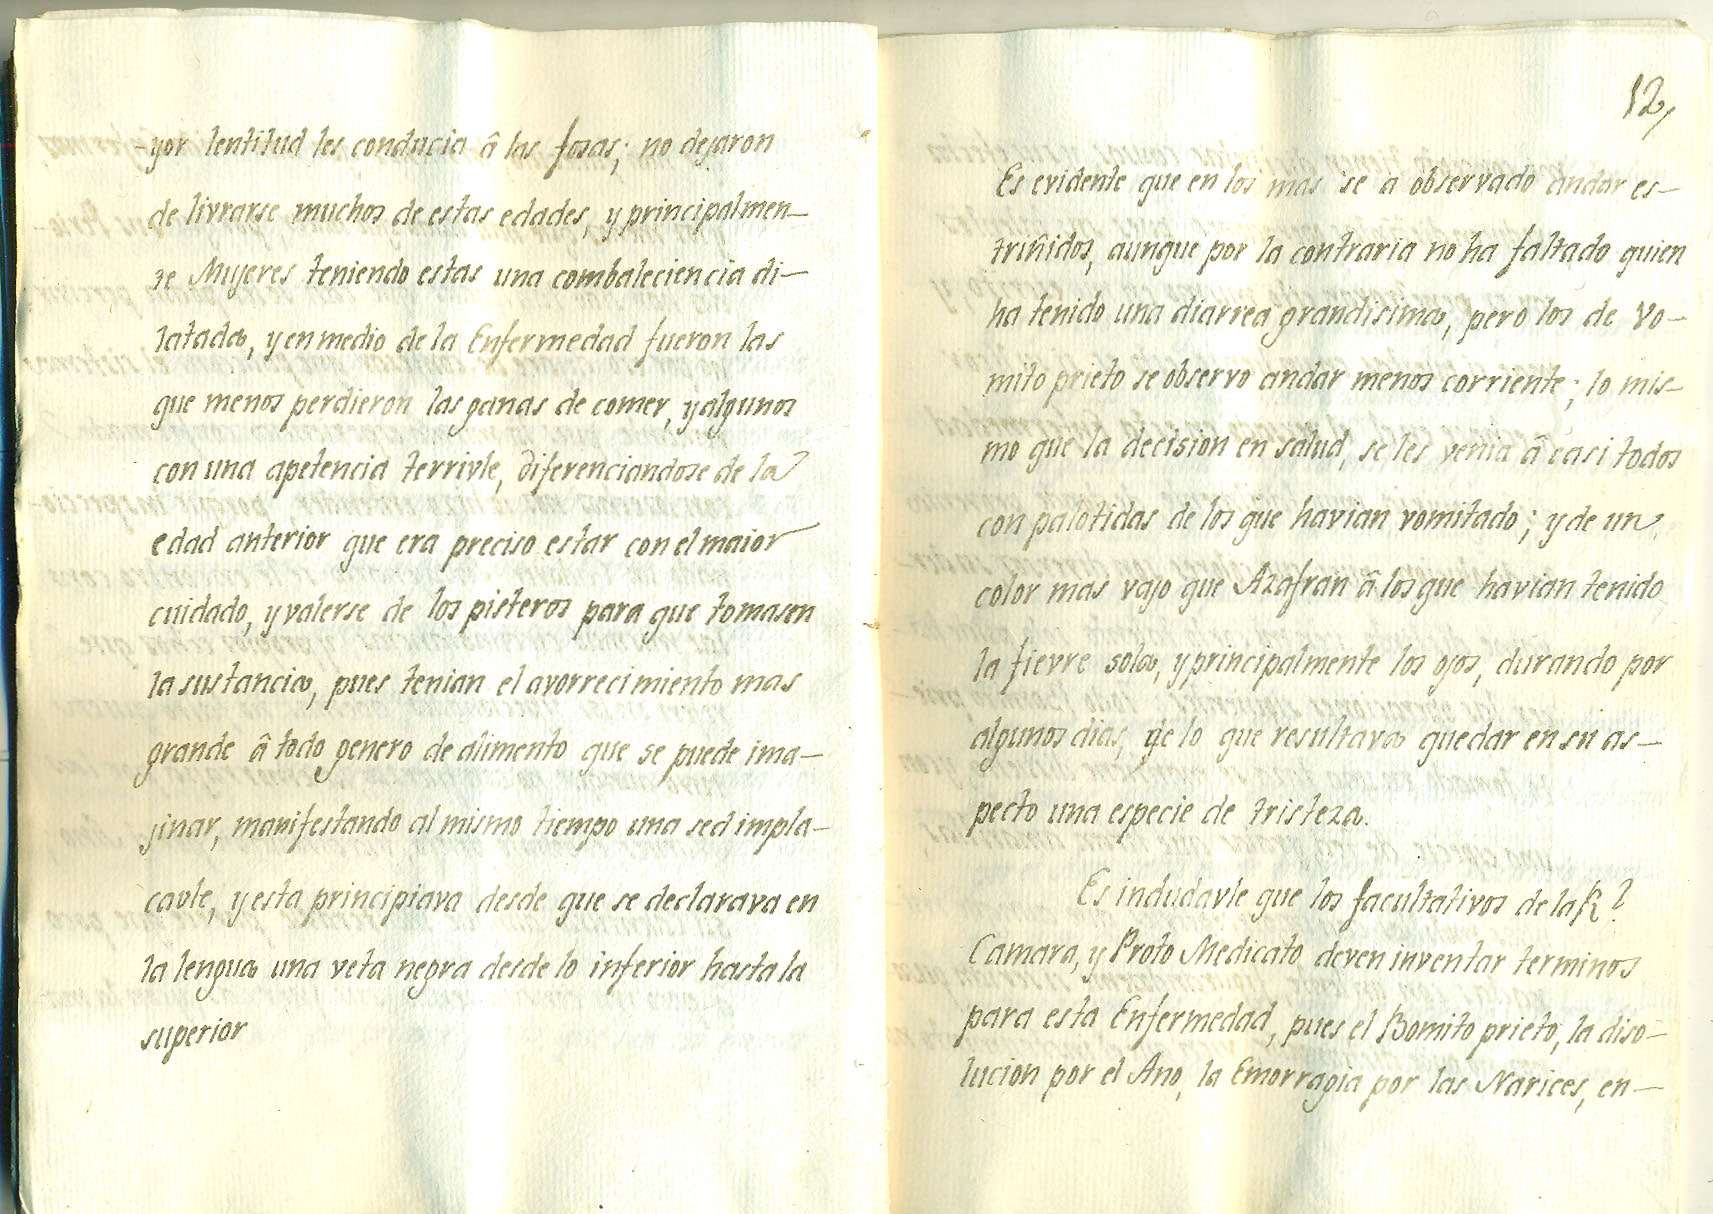 -yor lentitud les conducia â las fosas; no dejaron
de livrarse muchos de estas edades, y principalmen-
te Mujeres teniendo estas una combaleciencia di-
latada, y en medio de la Enfermedad fueron las
que menos perdieron las ganas de comer, y algunos
con una apetencia terrivle, diferenciandose de la
edad anterior que era preciso estar con el maior
cuidado, y valerse de los pisteros para que tomasen
la sustancia, pues tenian el avorrecimiento mas
grande â todo genero de alimento que se puede ima-
jinar, manifestando al mismo tiempo una sed impla-
cavle, y esta principiava desde que se declarava en
la lengua una veta negra desde lo inferior hasta la
superior
12,
Es evidente que en los mas se a observado andar es-
triñidos, aunque por la contraria no ha faltado quien
ha tenido una diarrea grandisima, pero los de Vo-
mito prieto se observo andar menos corriente; lo mis-
mo que la decision en salud, se les venia â casi todos
con palotidas de los que havian vomitado; y de un
color mas vajo que Azafran â los que havian tenido
la fievre sola, y principalmente los ojos, durando por
algunos dias, de lo que resultava quedar en su as-
pecto una especie de tristeza.
Es indudavle que los facultativos de la Rl.
Camara, y Proto Medicato deven inventar terminos
para esta Enfermedad, pues el Bomito prieto, la diso-
lucion por el Ano, la Emorragia por las Narices, en-